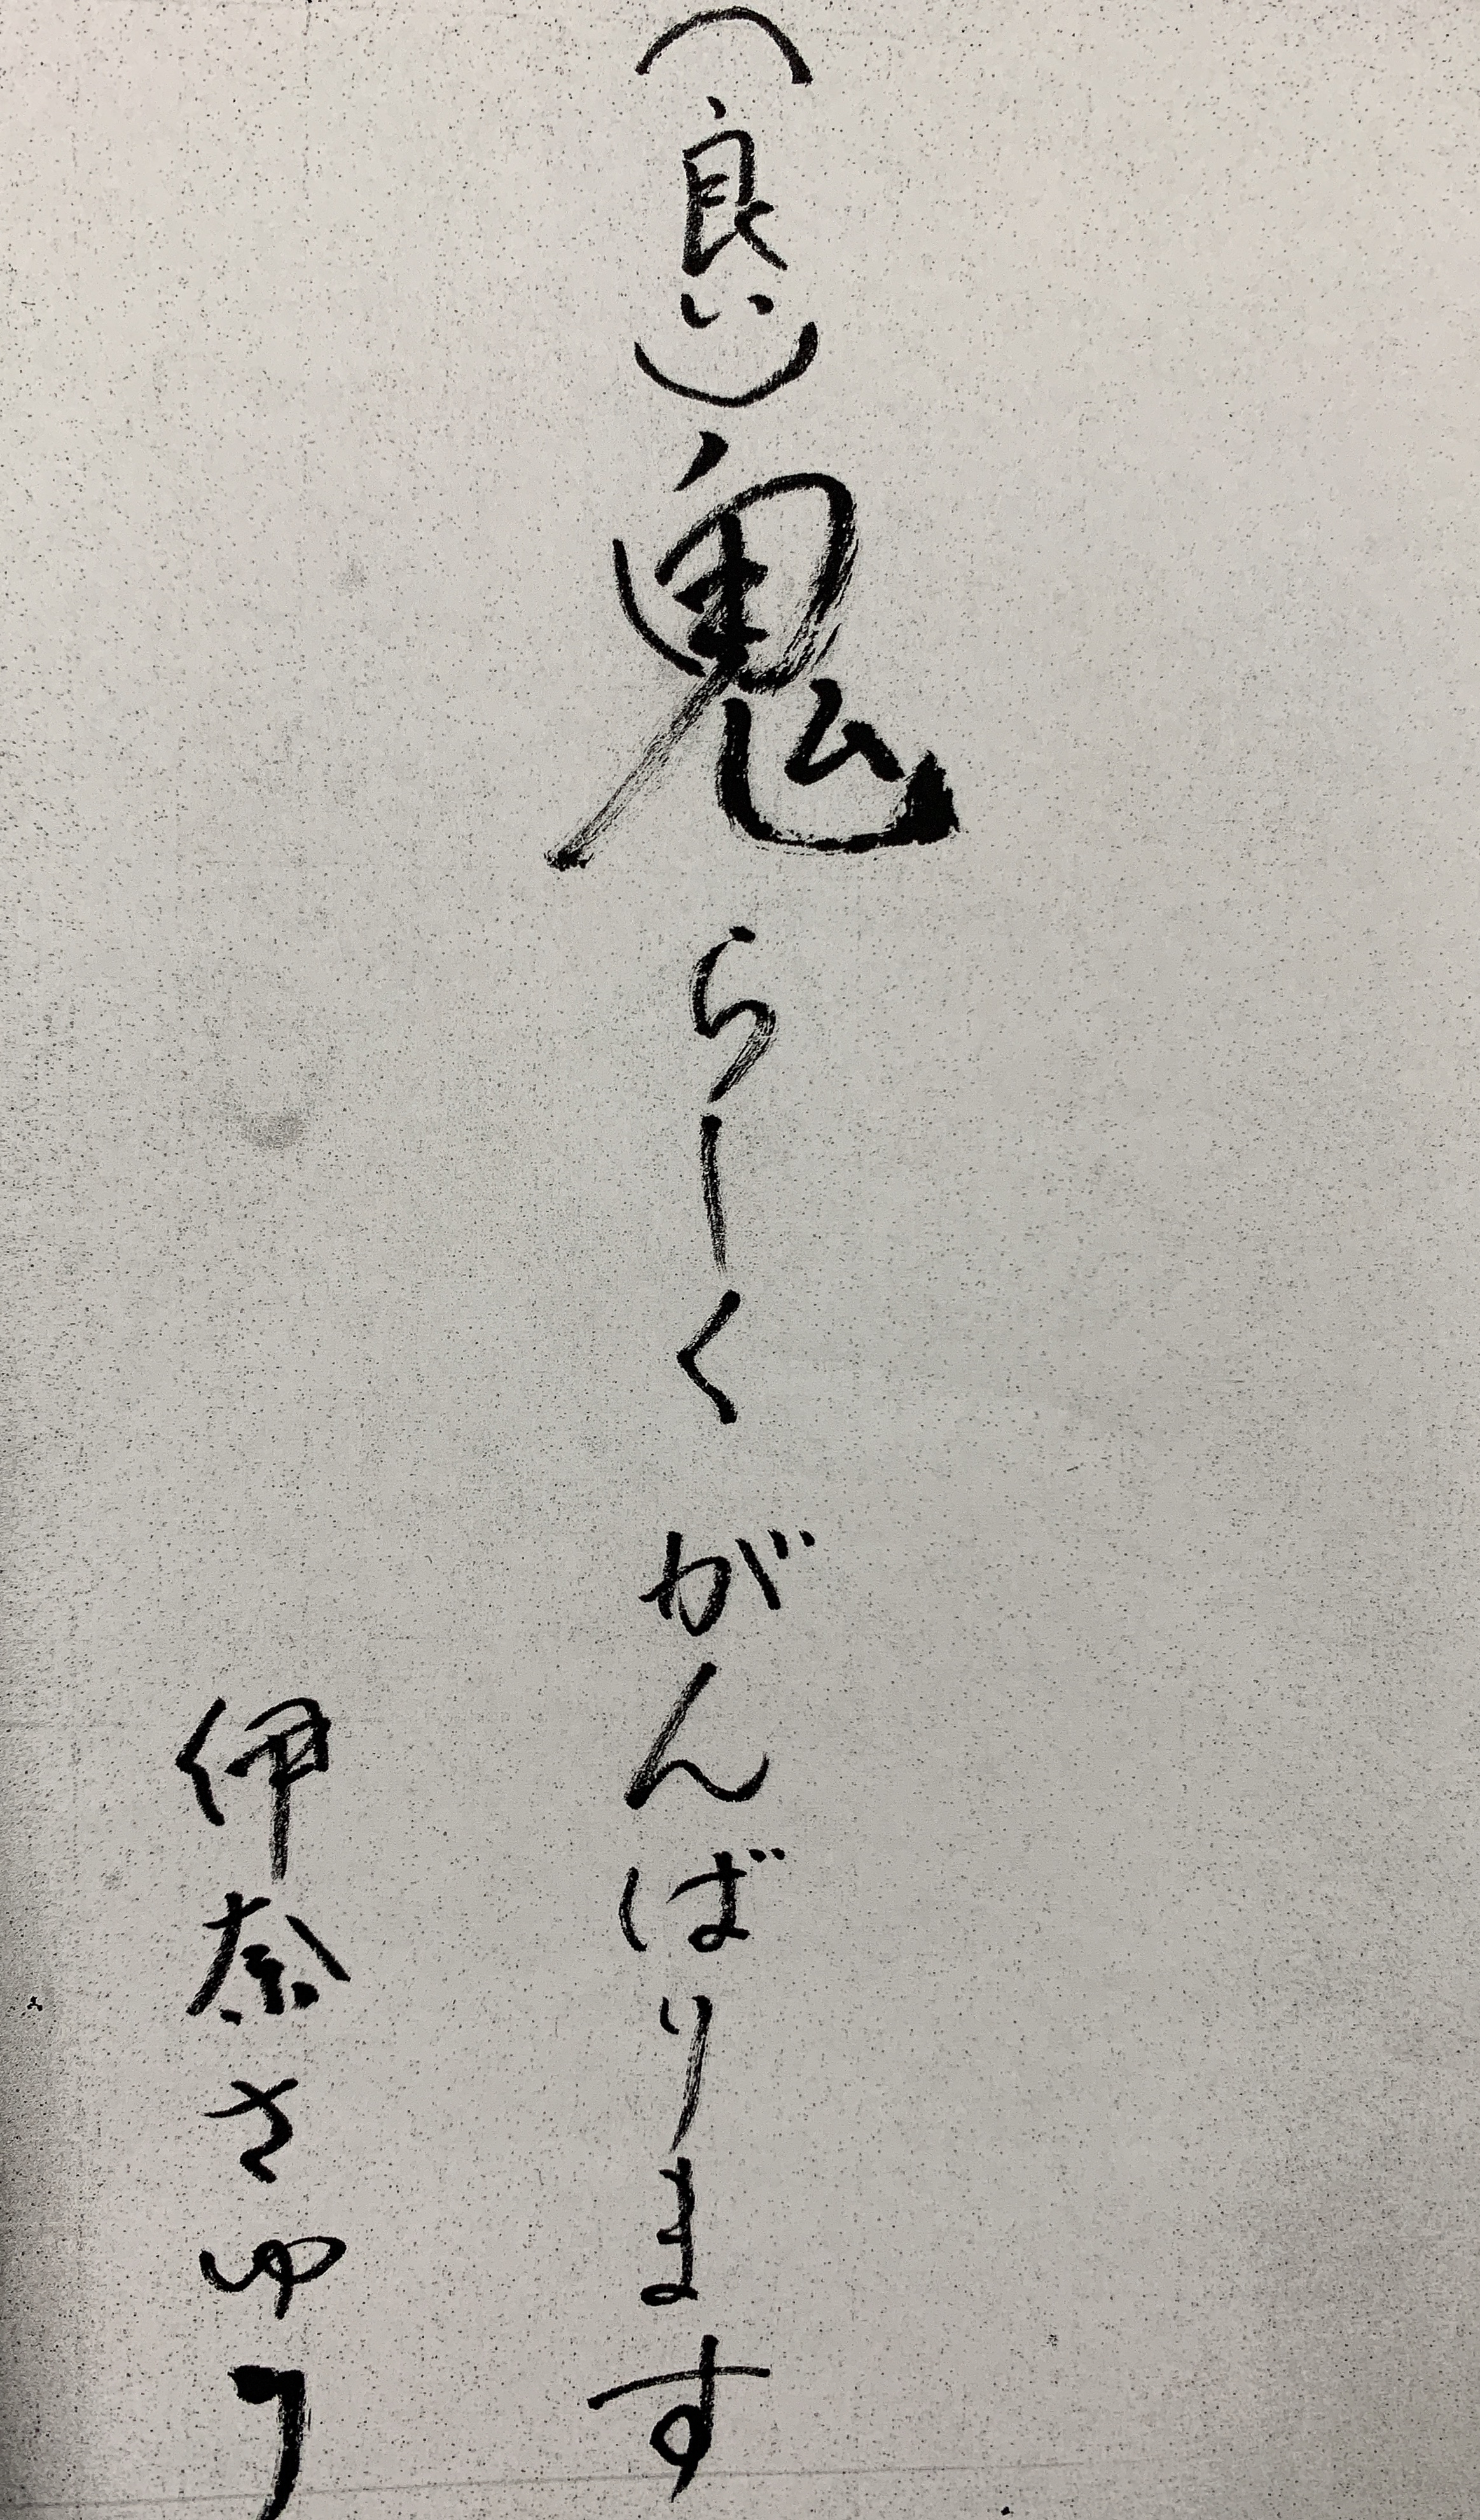 （良い）鬼らしく がんばります
伊奈さゆり